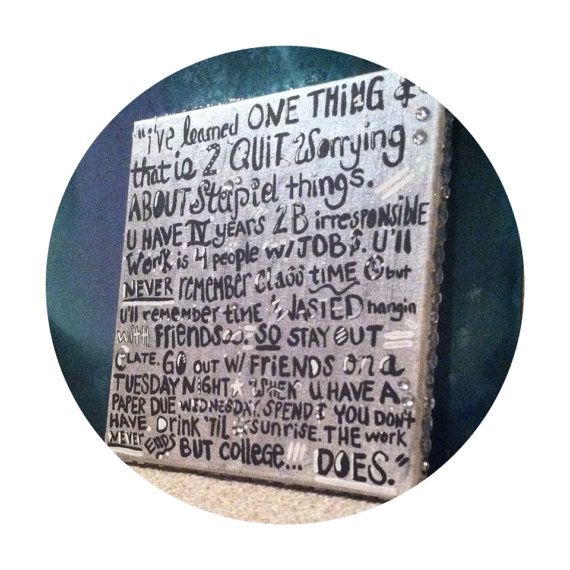 "i've learned ONE THING &
that is 2 QUIT worrying
ABOUT stupid things.
U HAVE IV YEARS 2B irresponsible
Work is 4 people w/ JOBS. U'll
NEVER remember class TIME but
u'll remember time WASTED hangin
with FRiENDS. SO STAY OUT
LATE. GO OUT W/ FRiENDS on a
TUESDAY NiGHT WHEN U HAVE A
PAPER DUE WEDNESDAY. SPEND $ YOU DON'T
HAVE. Drink 'TIL sunrise. THE work
NEVER ENDS BUT COLLEGE... DOES."